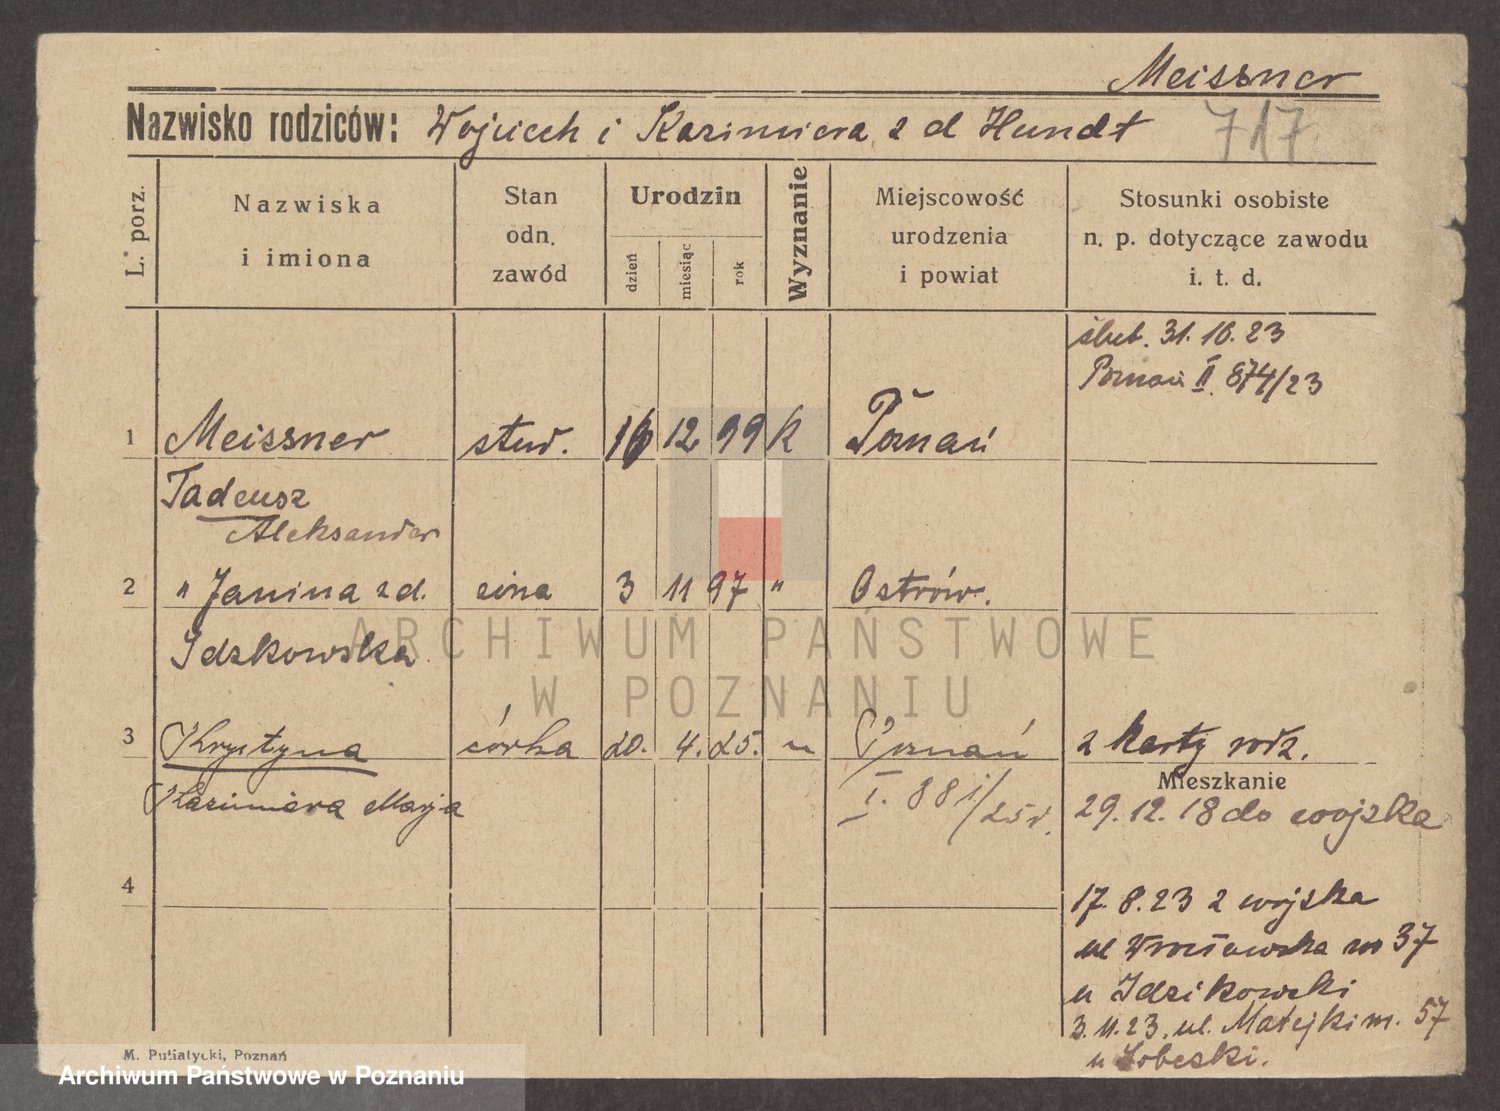 Meissner
Nazwisko rodziców: Wojciech i Kazimiera z d Hundt
717
L. porz.
Nazwiska
i imiona
Stan
odn.
zawód
Urodzin
dzień
miesiąc
rok
Wyznanie
Miejscowość
urodzenia
i powiat
Stosunki osobiste
n. p. dotyczące zawodu
i. t. d.
ślub. 31. 10. 23
Poznań II. 874/23
1 Meissner stud. 16 12 99 k Poznań
Tadeusz
Aleksander
2 " Janina z d. żona 3 11 97 " Ostrów.
Idzkowska
3 Krystyna córka 20. 4. 25. " Poznań z karty rodz.
Kazimiera Marja I. 881/25
Mieszkanie
29. 12. 18 do wojska
4
17. 8. 23 z wojska
ul Wrocławska 37
u Idzikowski
3. 11. 23. ul. Matejki m. 57
u Sobeski.
M. Putiatycki, Poznań
ARCHIWUM PAŃSTWOWE
W POZNANIU
Archiwum Państwowe w Poznaniu